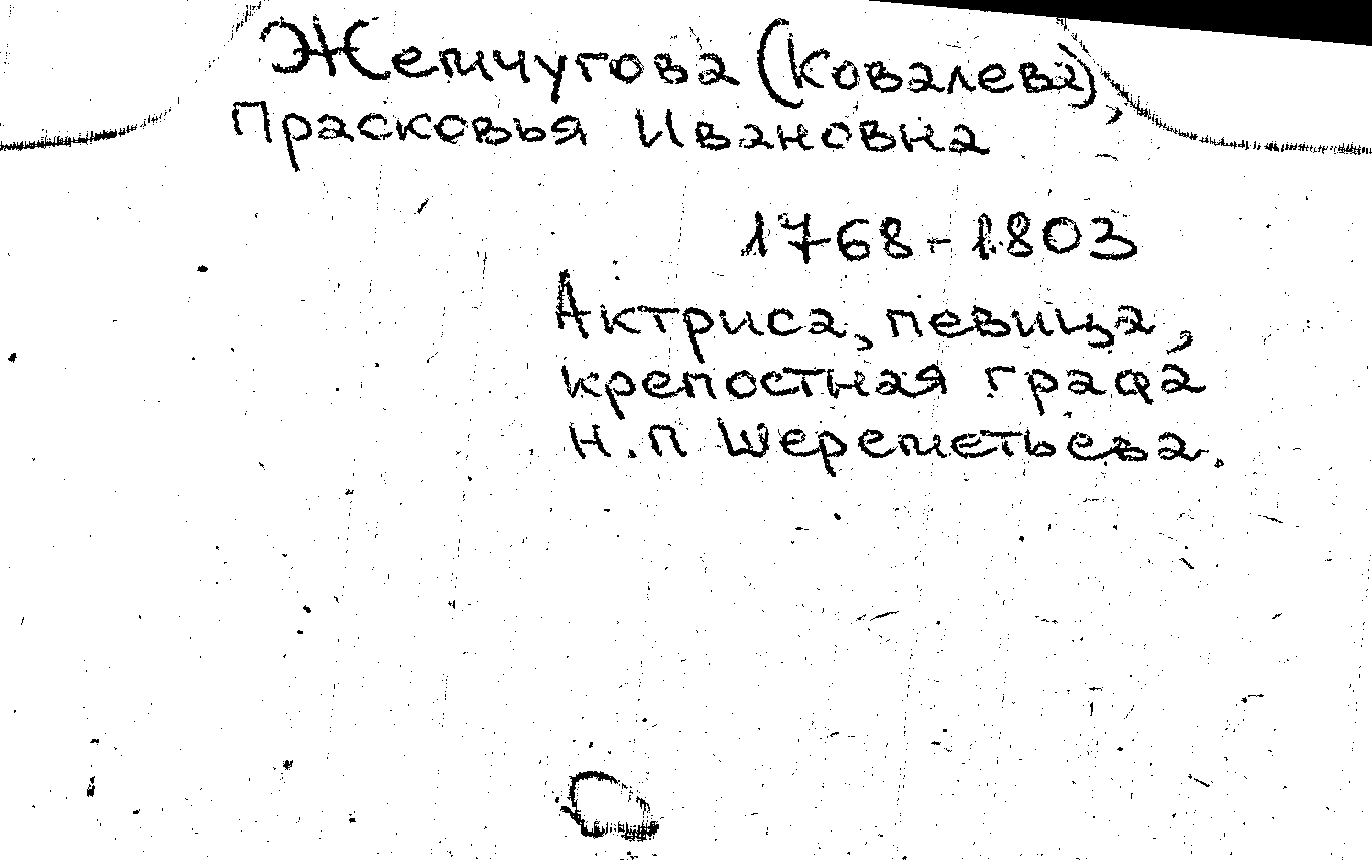 Жемчугова (Ковалева),
Прасковья Ивановна
1768-1803
Актриса, певица,
крепостная графа
Н.П Шереметьева.